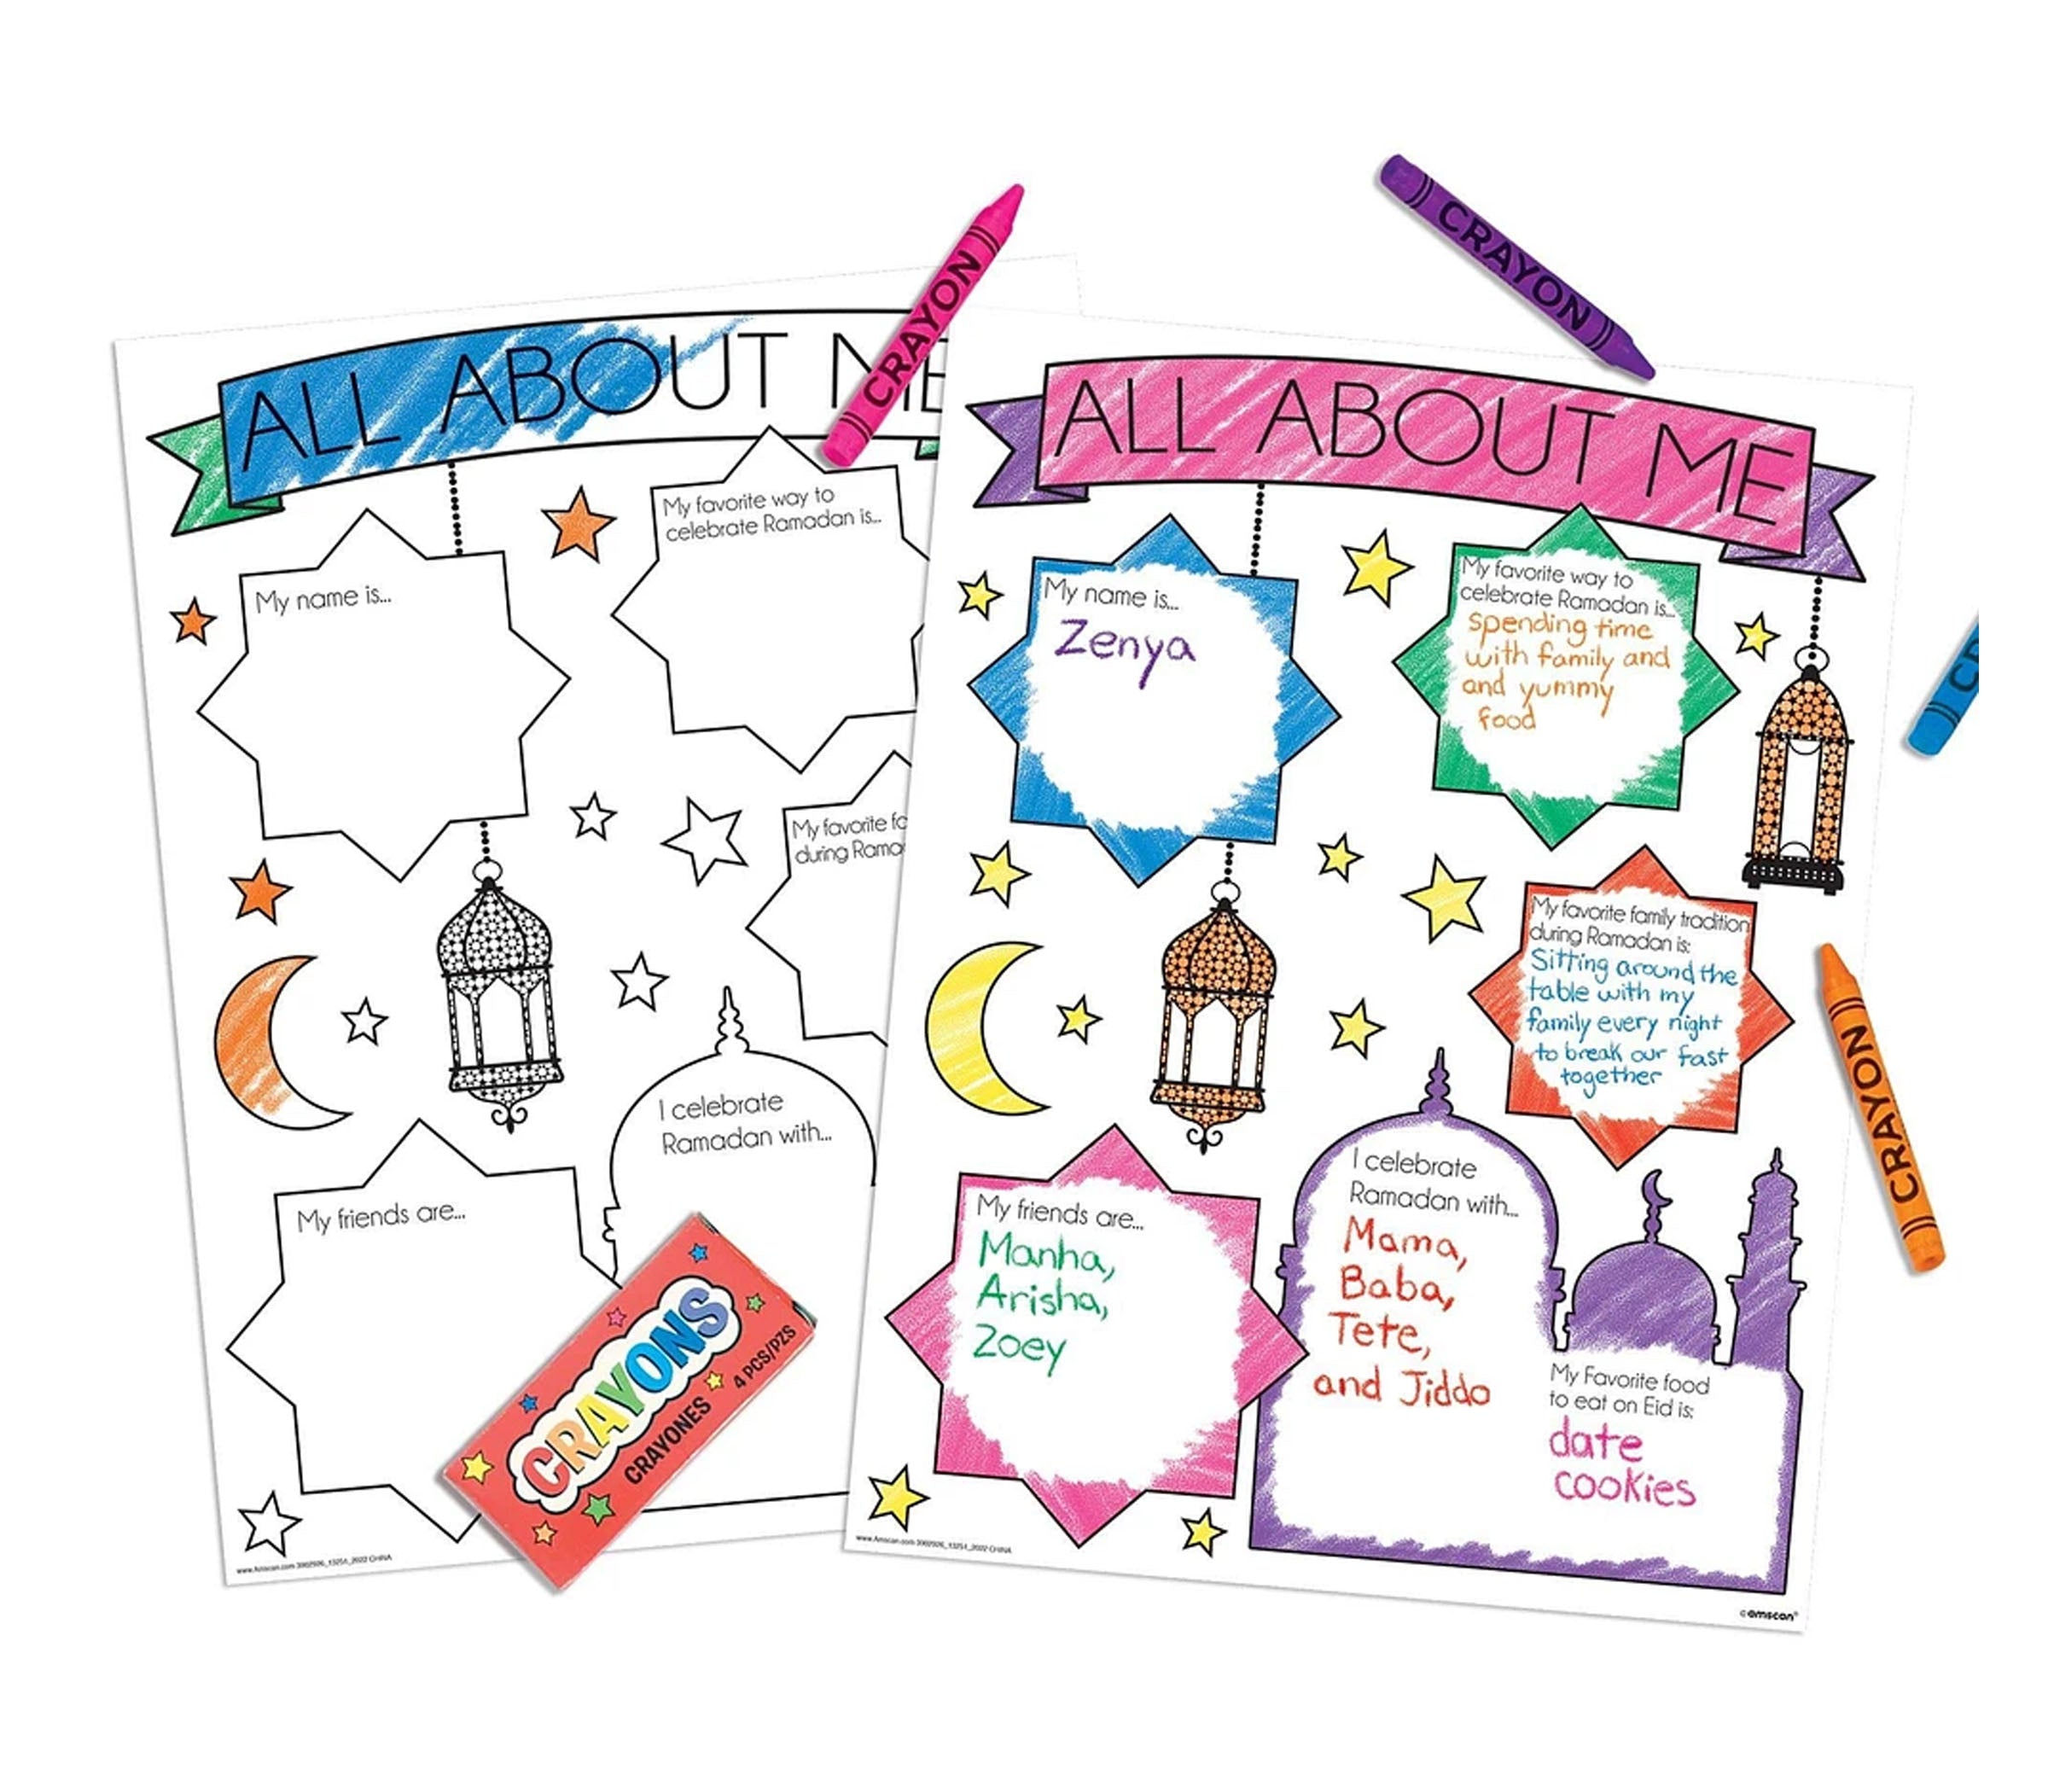 ALL ABOUT ME
My name is...
My favorite way to
celebrate Ramadan is...
My favorite
during
I celebrate
Ramadan with...
My friends are...
CRAYONS
CRAYONES
4 PCS/PZS
www.Amscan.com 3902926_13251_2022 CHINA
CRAYON
CRAYON
ALL ABOUT ME
My name is...
Zenya
My favorite way to
celebrate Ramadan is...
spending time
with family and
and yummy
food
My favorite family tradition
during Ramadan is:
Sitting around the
table with my
family every night
to break our fast
together
My friends are...
Manha,
Arisha,
Zoey
I celebrate
Ramadan with...
Mama,
Baba,
Tete,
and Jiddo
My Favorite food
to eat on Eid is:
date
cookies
www.Amscan.com 3902926_13251_2022 CHINA
©amscan®
CRAYON